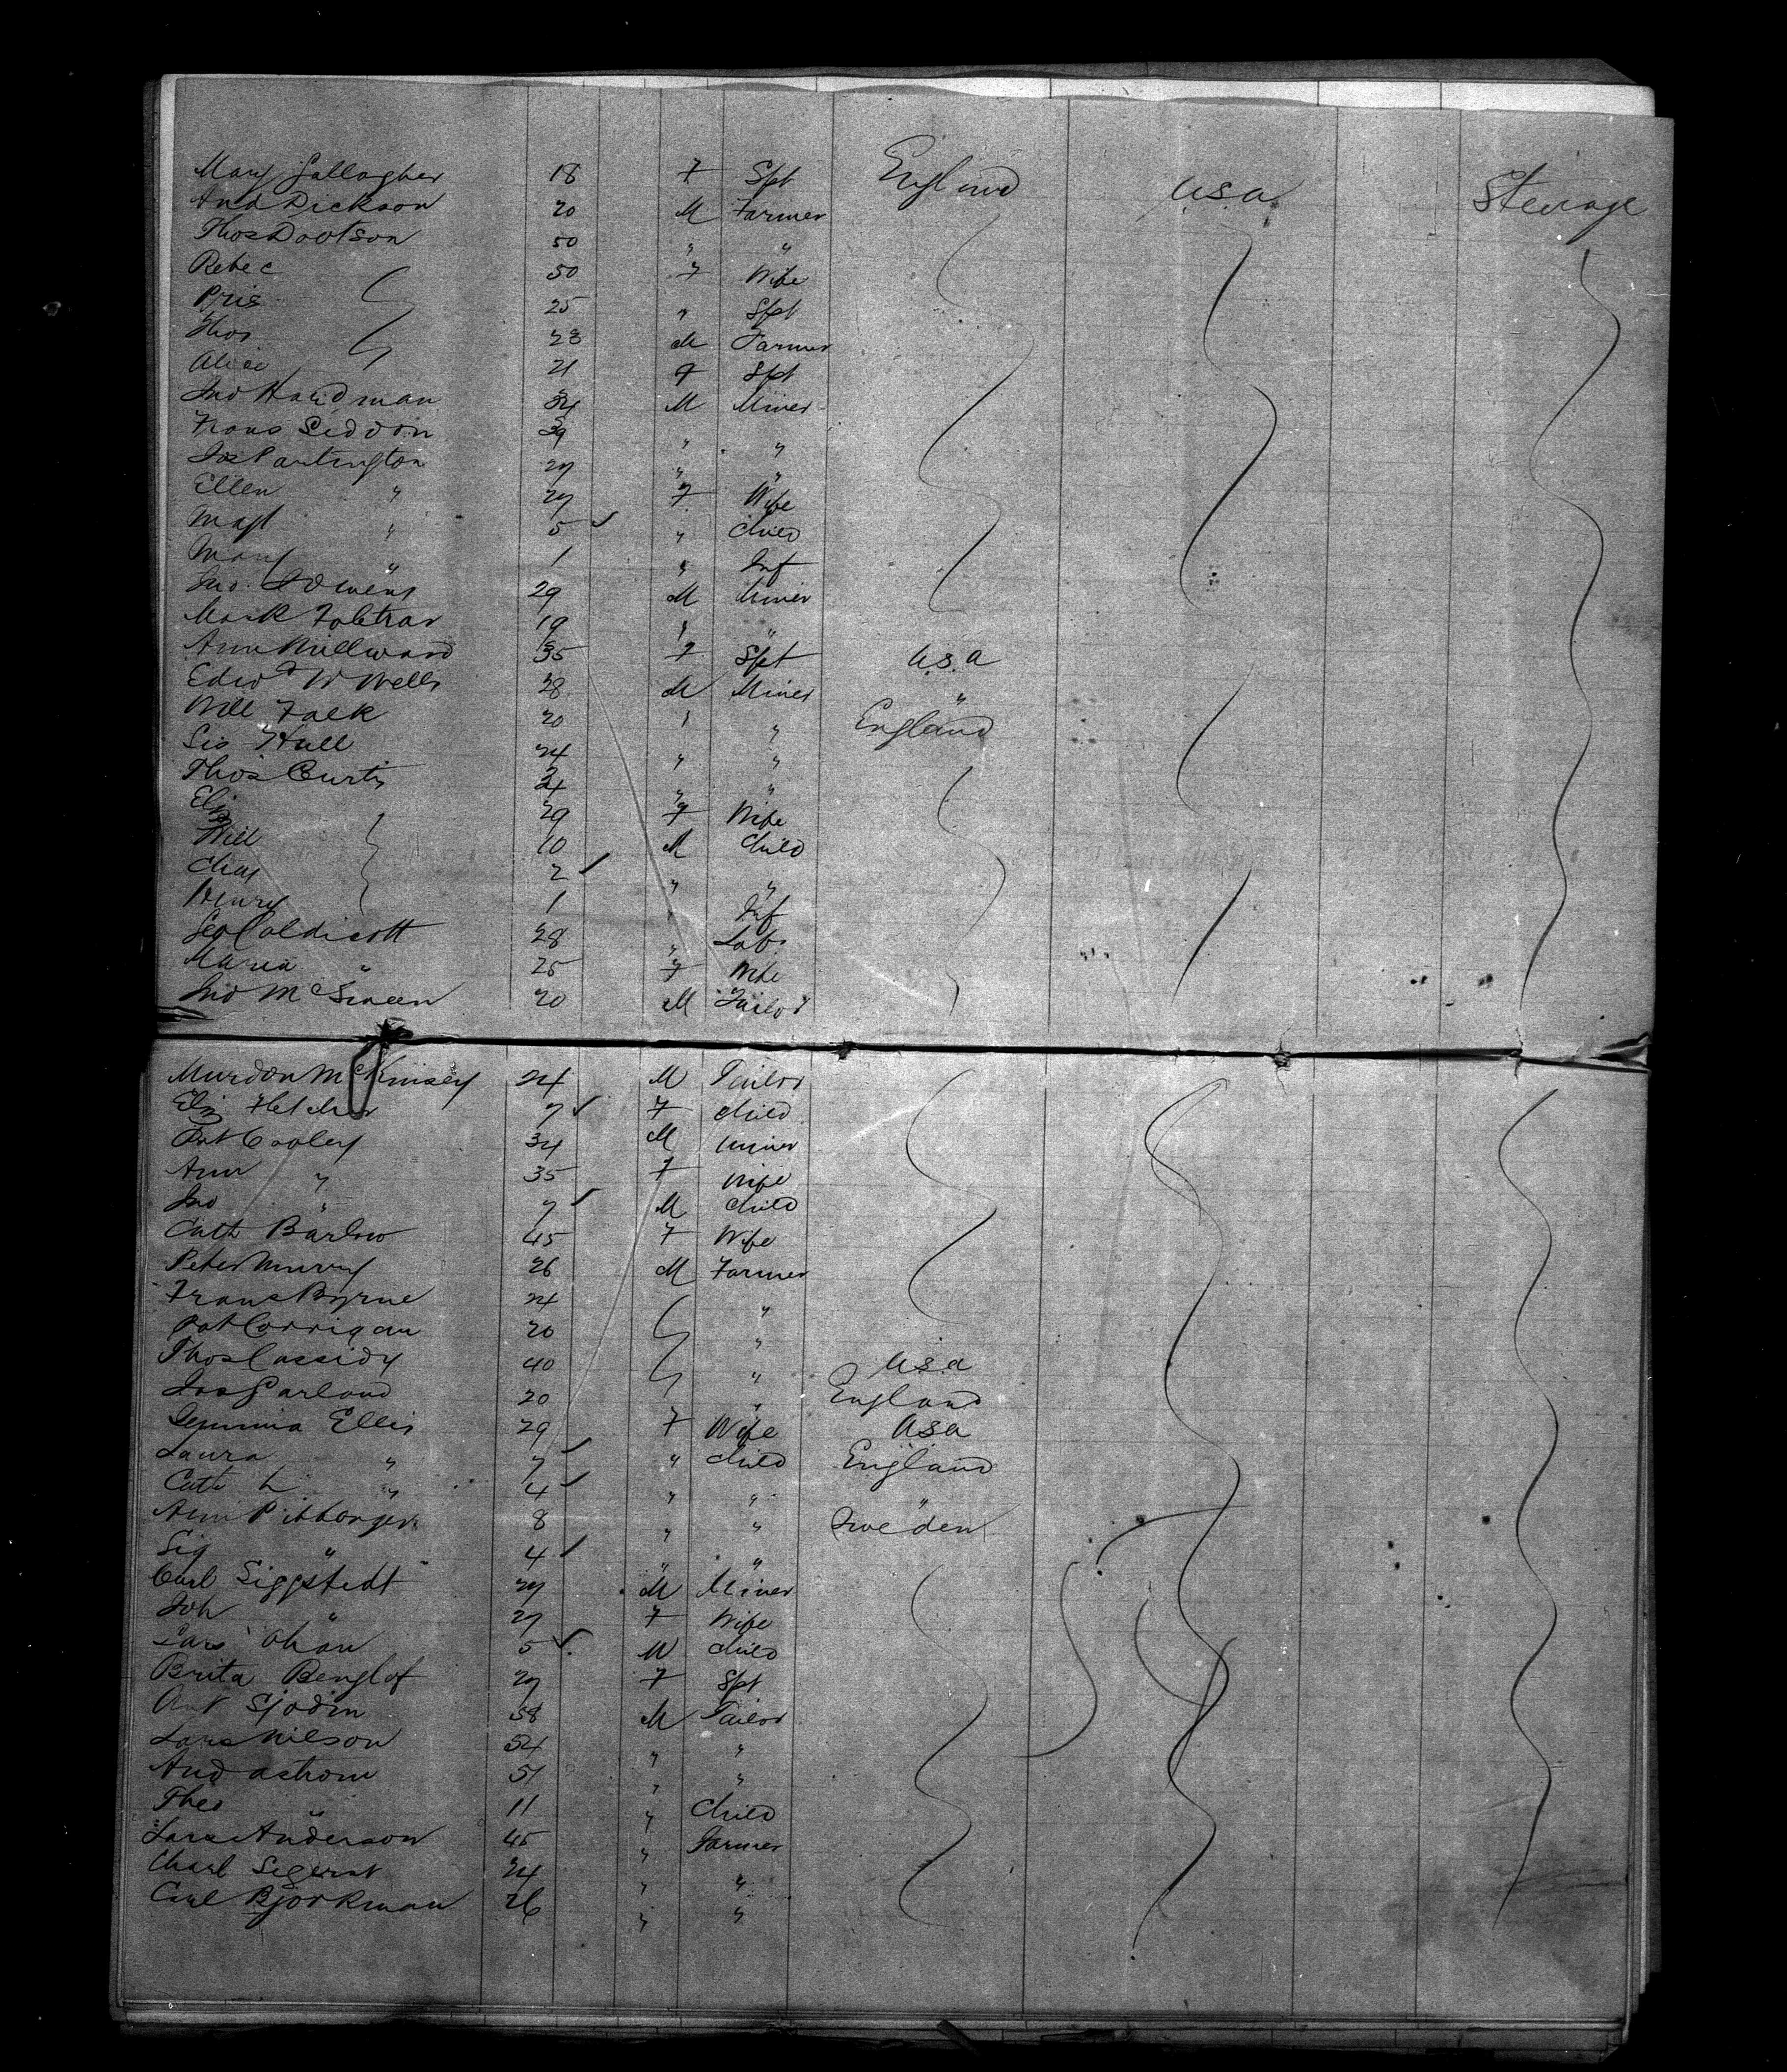 Mary Gallagher 18 F Spt England U.S.A Steerage
And Dickson 20 M Farmer
Thos Dootson 50 " "
Rebec 50 F Wife
Pris 25 " Spt
Thos 23 M Farmer
Alice 21 F Spt
Jno Hardman 34 M Miner
Frans Seddon 39 " "
Jas Partington 27 " "
Ellen " 27 F Wife
Magt " 5 " Child
Mary " 1 " Inf
Jno. Owens 29 M Miner
Mark 19 " "
Ann Millward 35 F Spt U.S.A
Edwd W Wells 28 M Miner "
Will Falk 20 " " England
Geo Hall 24 " "
Thos Curtis 34 " "
Eliz 29 F Wife
Will 10 M Child
Chas 2 " "
Henry 1 " Inf
Geo Coldicott 28 " Labr
Maria " 25 F Wife
Jno McSween 20 M Tailor
Murdon McKinsey 24 M Tailor
Eliz Fletcher 7 F Child
Pat Cooley 34 M Miner
Ann " 35 F Wife
Jno " 7 M Child
Cath Barlow 45 F Wife
Peter Murry 26 M Farmer
Frans Byrne 24 "
Pat Corrigan 20 "
Thos Cassidy 40 " U.S.A
Jas Garland 20 " England
Jemima Ellis 29 F Wife U.S.A
Laura " 7 " Child England
Cath L " 4 " "
Ann 8 " " Sweden
Sig " 4 " "
Carl Siggstedt 27 M Miner
Joh " 27 F Wife
Lars Ohan 5 M Child
Brita Benglof 27 F Spt
Ant Sjodin 38 M Tailor
Lars Nilson 54 " "
And Astrom 51 " "
Theo " 11 " Child
Lars Anderson 45 " Farmer
Charl Sigerst 24 " "
Carl Bjorkman 26 " "